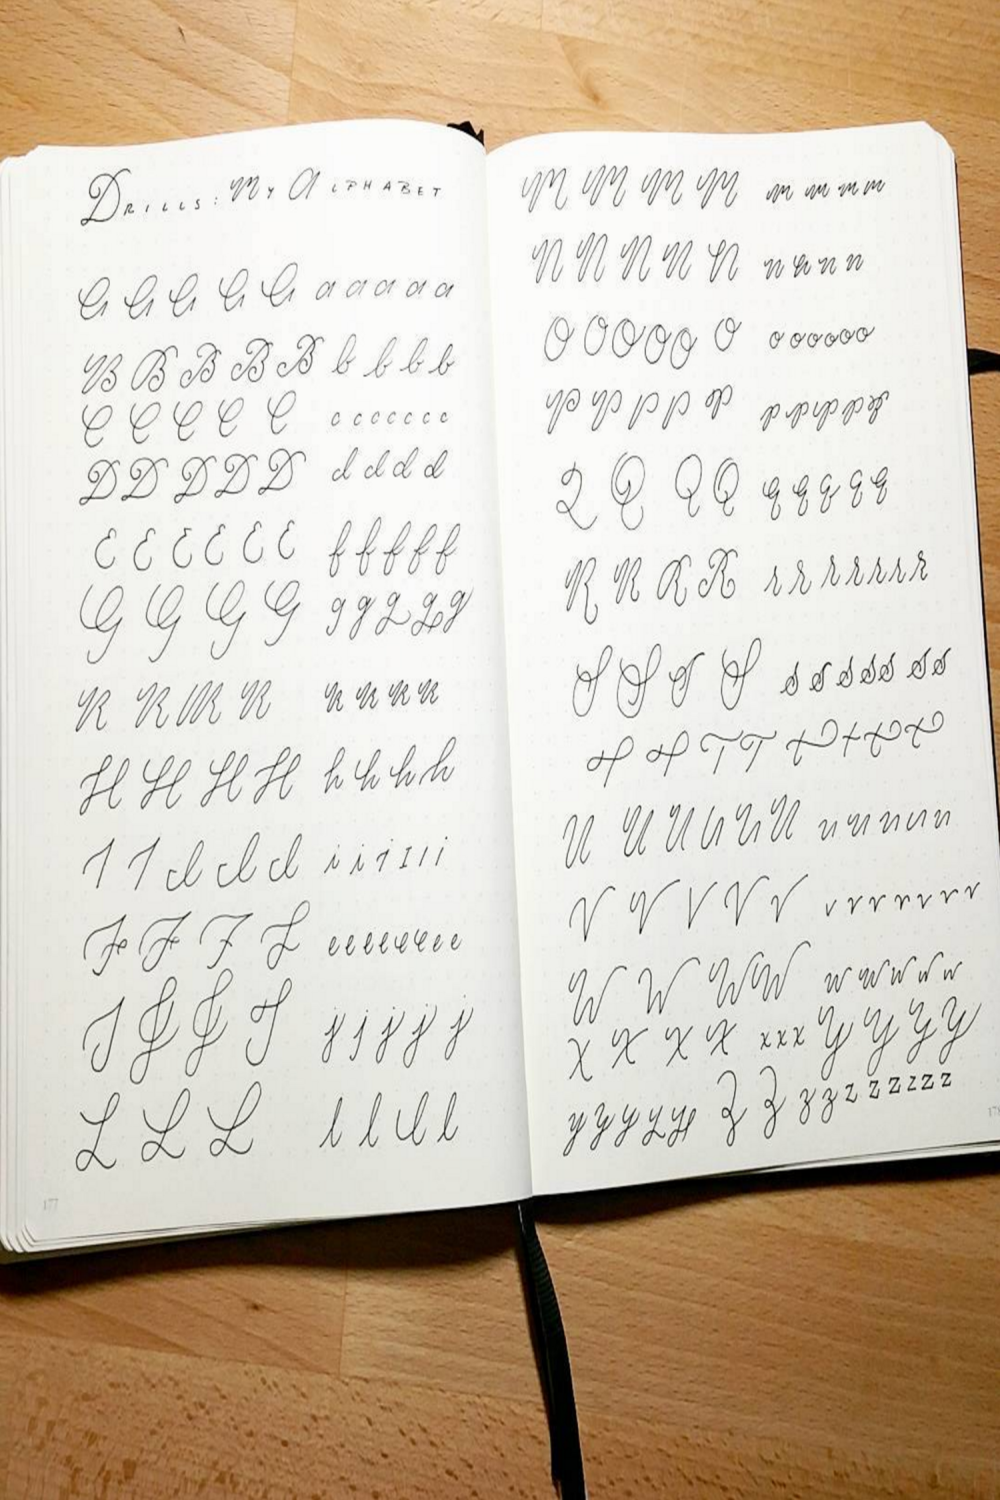 Drills: My Alphabet
A A A A A a a a a a
B B B B B b b b b
C C C C C c c c c c c c
D D D D D d d d d
E E E E E E f f f f f
G G G G g g g g g
K K K K k k k k
H H H H h h h h
I I I I I i i i I i i
F F F F e e e e e e e e
J J J J j j j j j
L L L l l l l
177
M M M M m m m m
N N N N N n n n n
O O O O O O o o o o o o
P P P P P p p p p p p
Q Q Q Q q q q q q
R R R R r r r r r r r
S S S S s s s s s s s
T T T T t t t t
U U U U U U u u u u u
V V V V V v v v v v v v
W W W W w w w w w
X X X X x x x Y Y Y Y
y y y y y Z Z z z z z z z z z